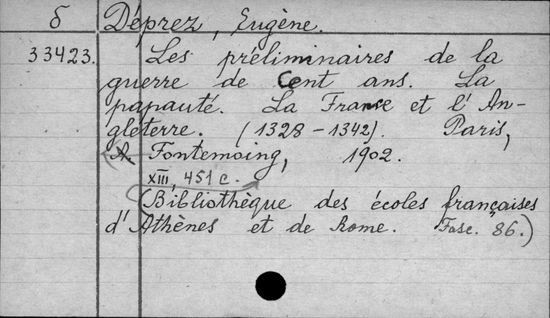 б Déprez, Eugène.
33423. Les préliminaires de la
guerre de Cent ans. La
papauté. La France et l'An-
gleterre. (1328-1342). Paris,
A. Fontemoing, 1902.
XIII, 451 c.
(Bibliothèque des écoles françaises
d'Athènes et de Rome. Fasc. 86.)